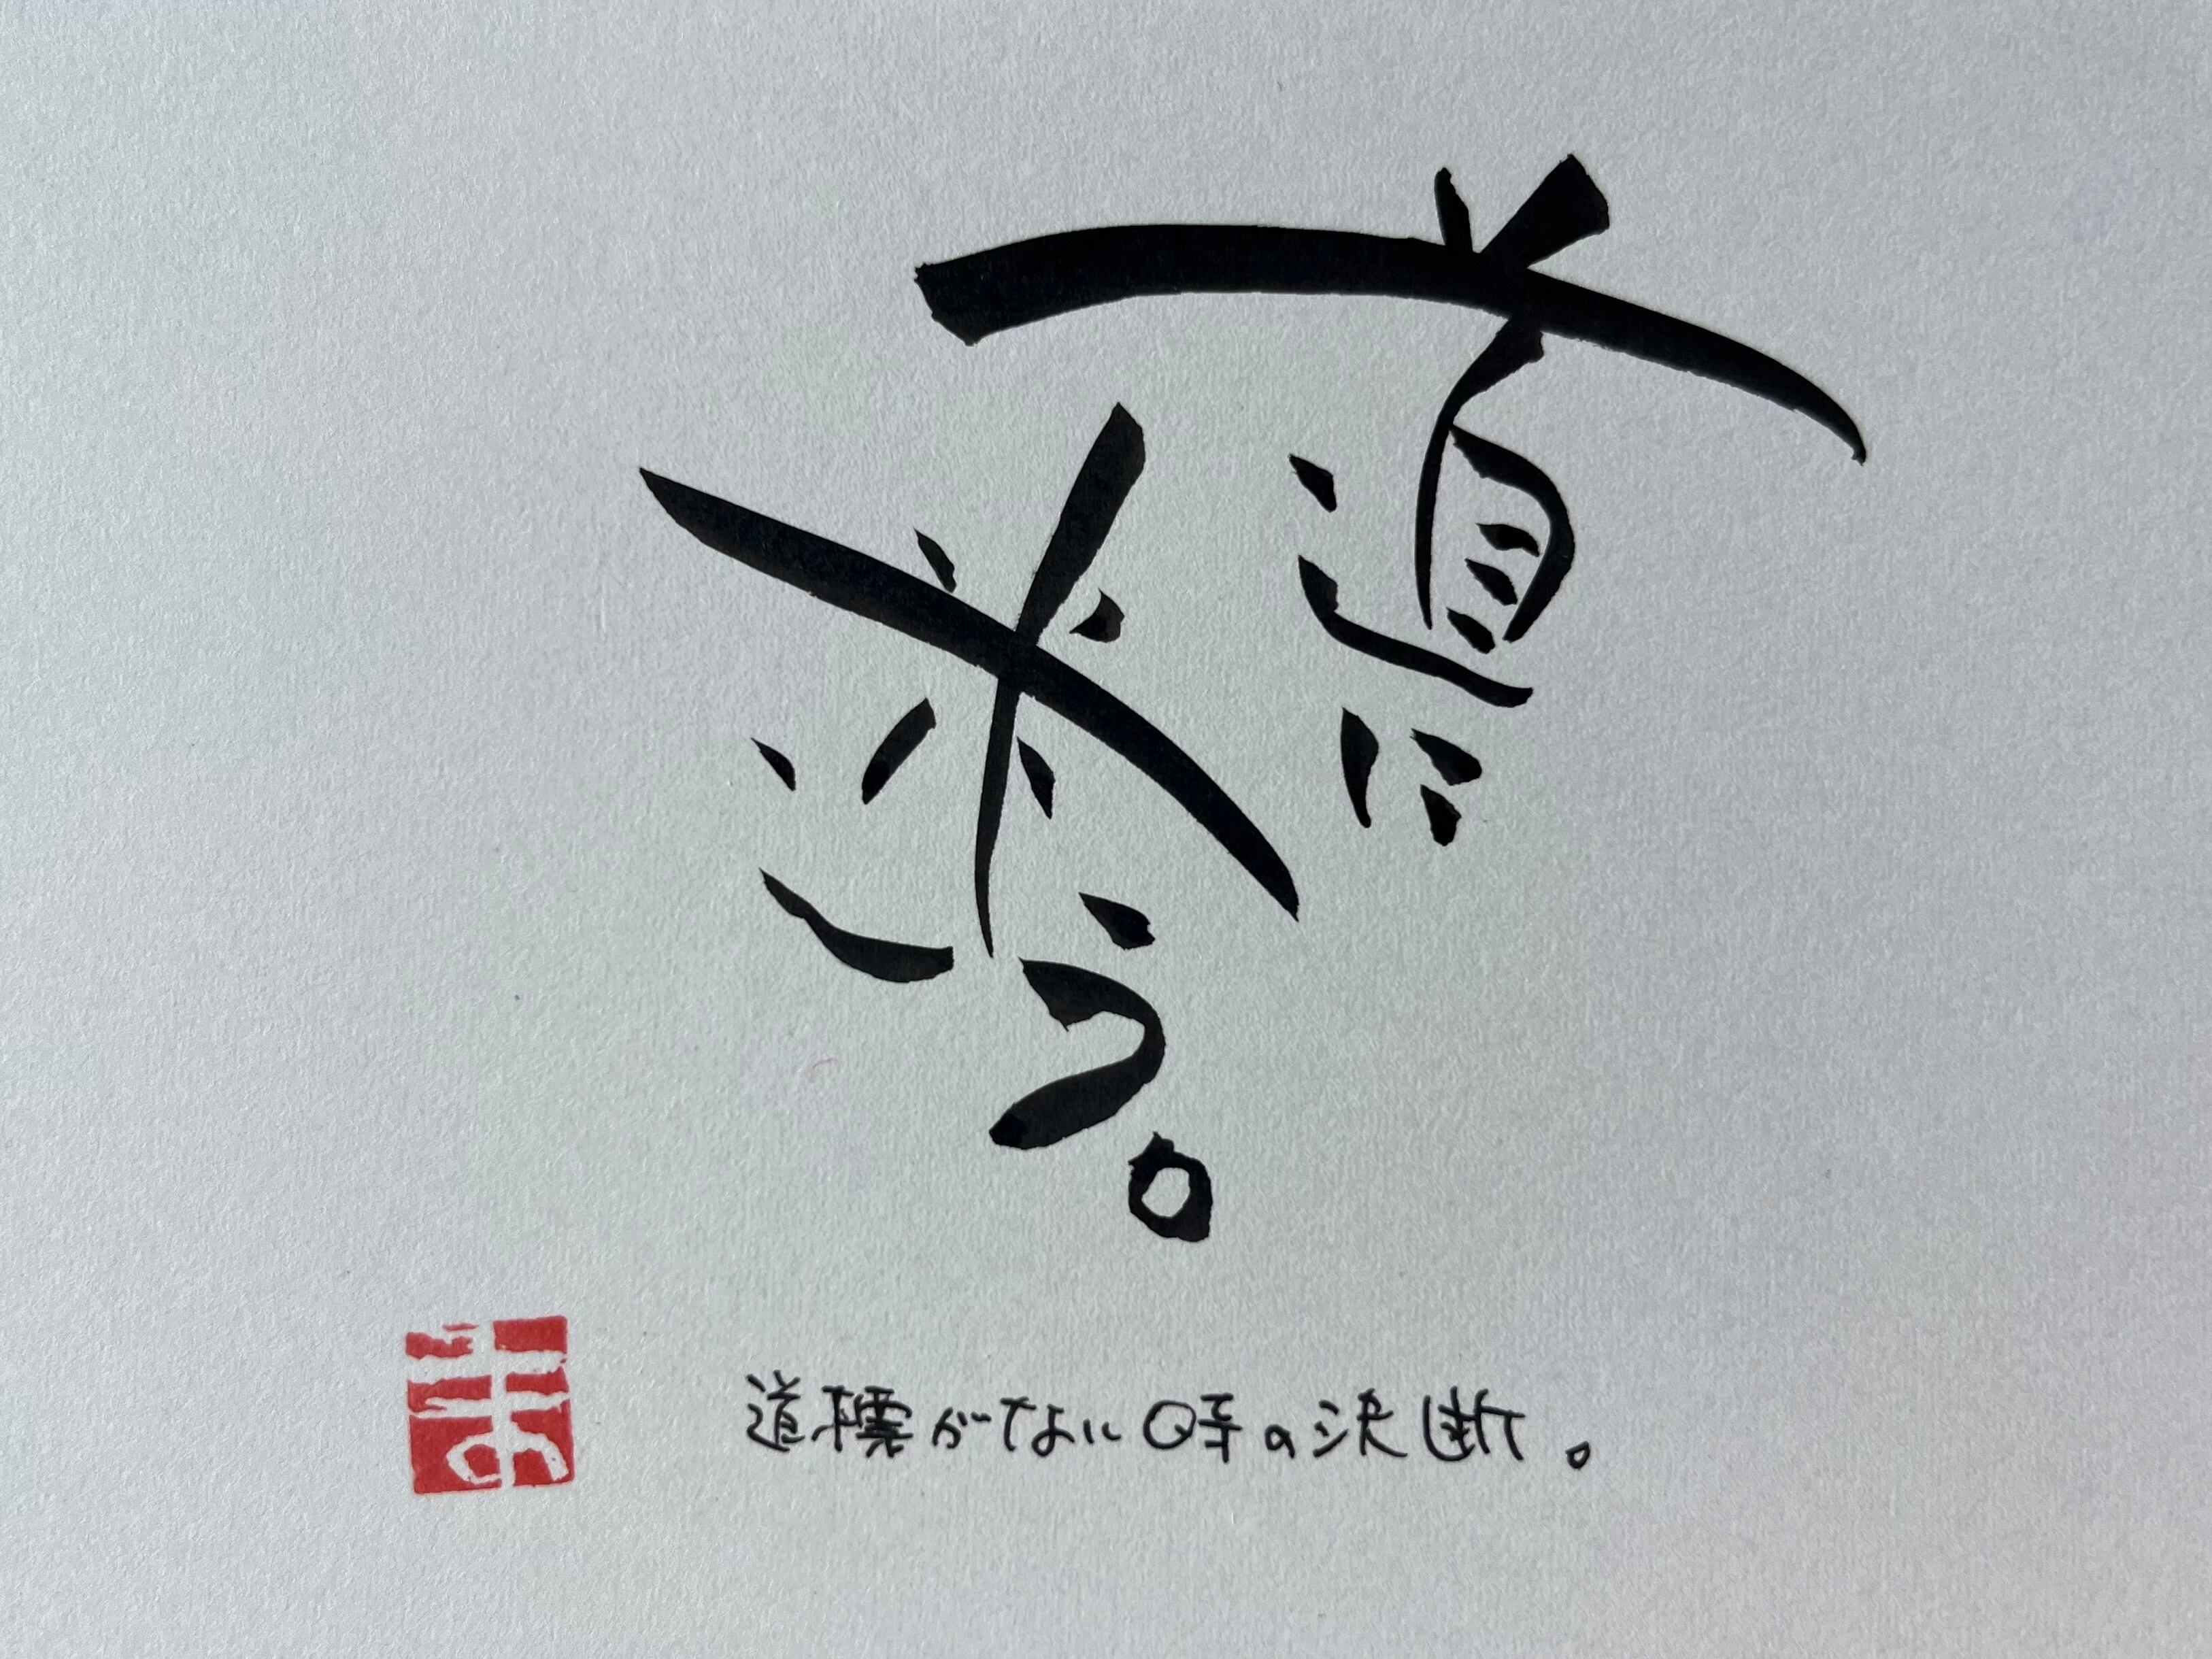 道に
迷う。
道標がない時の決断。